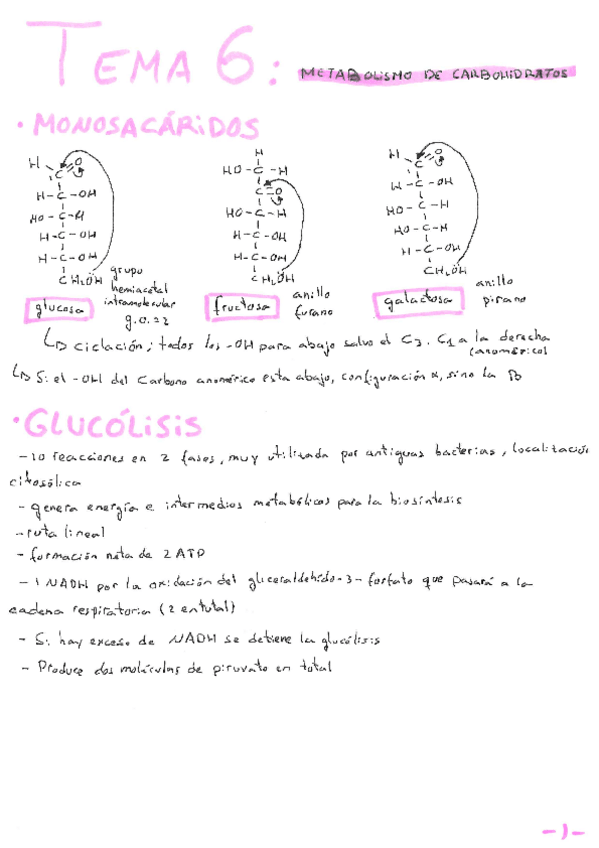 TEMA 6: METABOLISMO DE CARBOHIDRATOS
• MONOSACÁRIDOS
H O
C
H-C-OH
HO-C-H
H-C-OH
H-C-OH
CH₂ÖH
grupo
hemiacetal
intramolecular
glucosa
H
HO-C-H
C=O
HO-C-H
H-C-OH
H-C-OH
CH₂ÖH
fructosa
anillo
furano
H O
C
H-C-OH
HO-C-H
HO-C-H
H-C-OH
CH₂ÖH
galactosa
anillo
pirano
↳ ciclación; todos los -OH para abajo salvo el C3. C1 a la derecha
(anomérico)
↳ Si el -OH del carbono anomérico esta abajo, configuración α, sino la β
• GLUCÓLISIS
- 10 reacciones en 2 fases, muy utilizada por antiguas bacterias, localización
citosólica
- genera energía e intermedios metabólicos para la biosíntesis
- ruta lineal
- formación neta de 2 ATP
- 1 NADH por la oxidación del gliceraldehído-3-fosfato que pasará a la
cadena respiratoria (2 en total)
- Si hay exceso de NADH se detiene la glucólisis
- Produce dos moléculas de piruvato en total
-1-